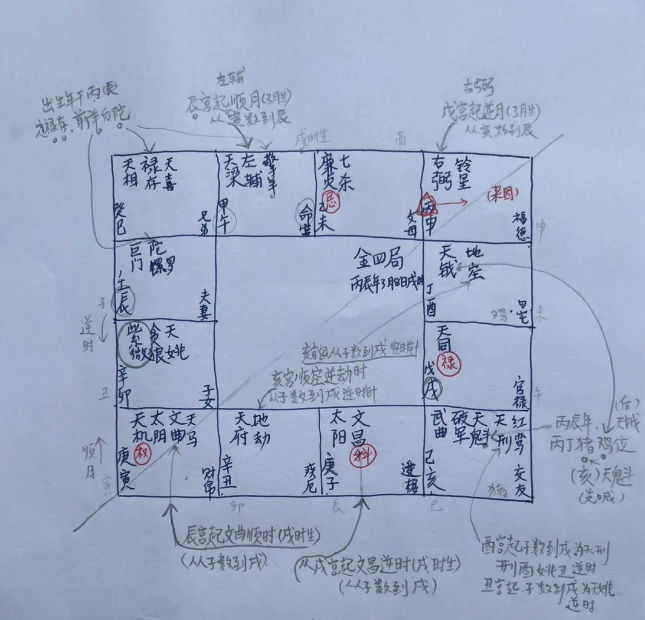 左辅
辰宫起顺月(3月生)
从寅数到辰
右弼
戌宫起逆月(3月生)
从寅数到辰
出生年干丙票
定禄存，前羊后陀
戌时生
酉
天相
禄存
天喜
癸巳
兄弟
天梁
左辅
擎羊
甲午
命宫
廉贞
忌
七杀
乙未
父母
右弼
铃星
丙申
(来因)
福德
申
巨门
陀螺罗
壬辰
夫妻
金四局
丙辰年3月8日戌时
天钺
地空
丁酉
田宅
未
子
逆时
紫微
贪狼
天姚
辛卯
子女
天同
禄
戊戌
官禄
午
亥宫从子数到戌顺时针
亥宫顺空逆劫时
从子数到戌逆时针
丑
天机
权
太阴
文曲
天马
庚寅
财帛
天府
地劫
辛丑
疾厄
太阳
文昌
科
庚子
迁移
武曲
破军
天魁
天刑
红鸾
己亥
交友
顺月
寅
卯
辰
巳
猪
(后)天钺
丙辰年，
丙丁猪鸡位
(亥)天魁
辰宫起文曲顺时(戌时生)
(从子数到戌)
从戌宫起文昌逆时(戌时生)
(从子数到戌)
酉宫起子数到戌为天刑
刑酉姚丑逆时
丑宫起子数到戌为天姚
逆时